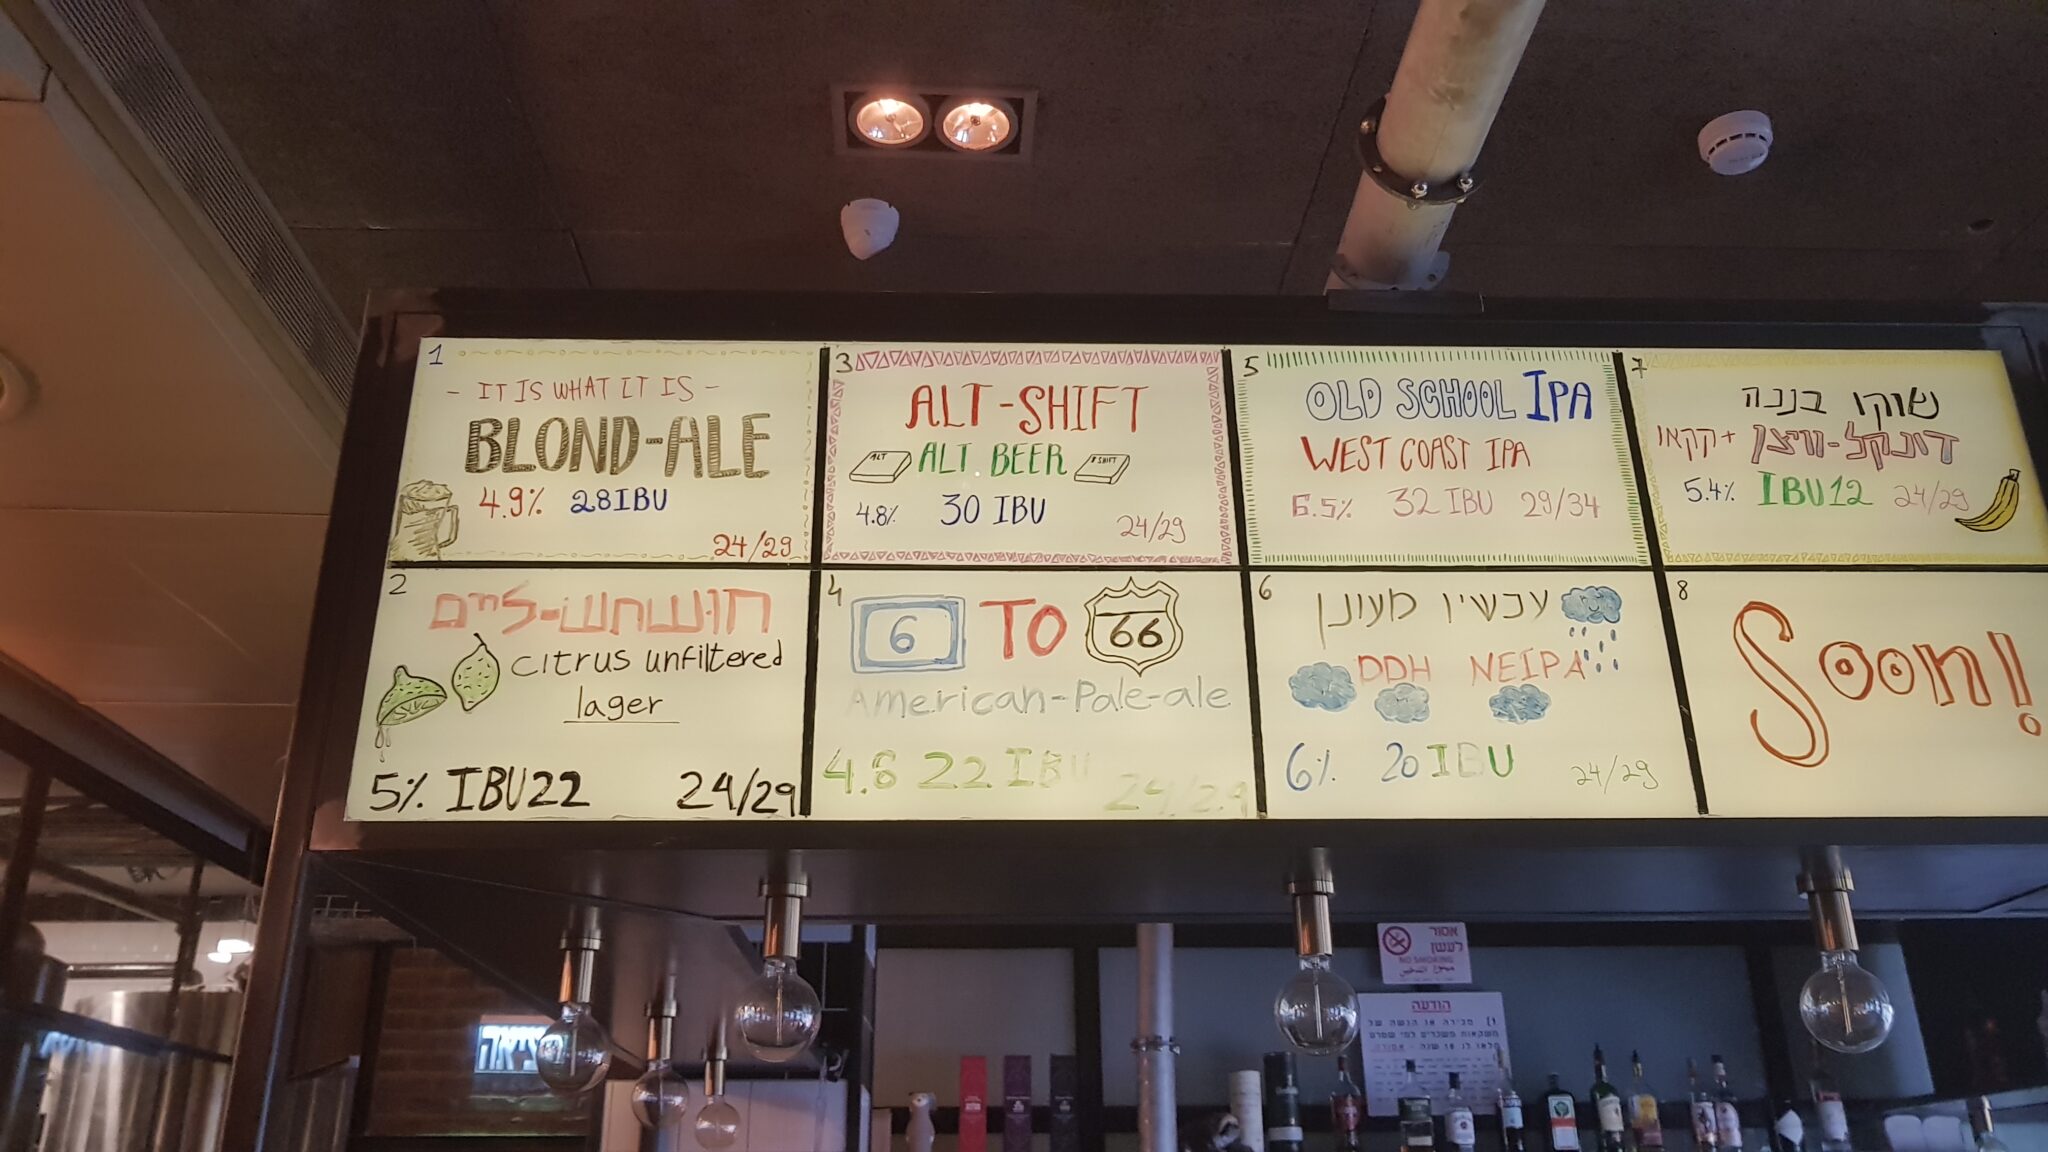 1
- IT IS WHAT IT IS -
BLOND-ALE
4.9% 28IBU
24/29
3
ALT-SHIFT
ALT ALT. BEER # SHIFT
4.8% 30 IBU
24/29
5
OLD SCHOOL IPA
WEST COAST IPA
6.5% 32 IBU 29/34
7
שוקו בננה
דונקל-וויצן + קקאו
5.4% IBU12 24/29
2
חושחש-ליים
citrus unfiltered
lager
5% IBU22 24/29
4
6 TO 66
American-Pale-ale
4.8 22 IBU
24/29
6
עכשיו מעונן
DDH NEIPA
6% 20 IBU
24/29
8
Soon!
יציאה
אסור
לעשן
NO SMOKING
ممنوع التدخين
הודעה
מכירה או הגשה של
משקאות משכרים למי שטרם
מלאו לו 18 שנה - אסורה